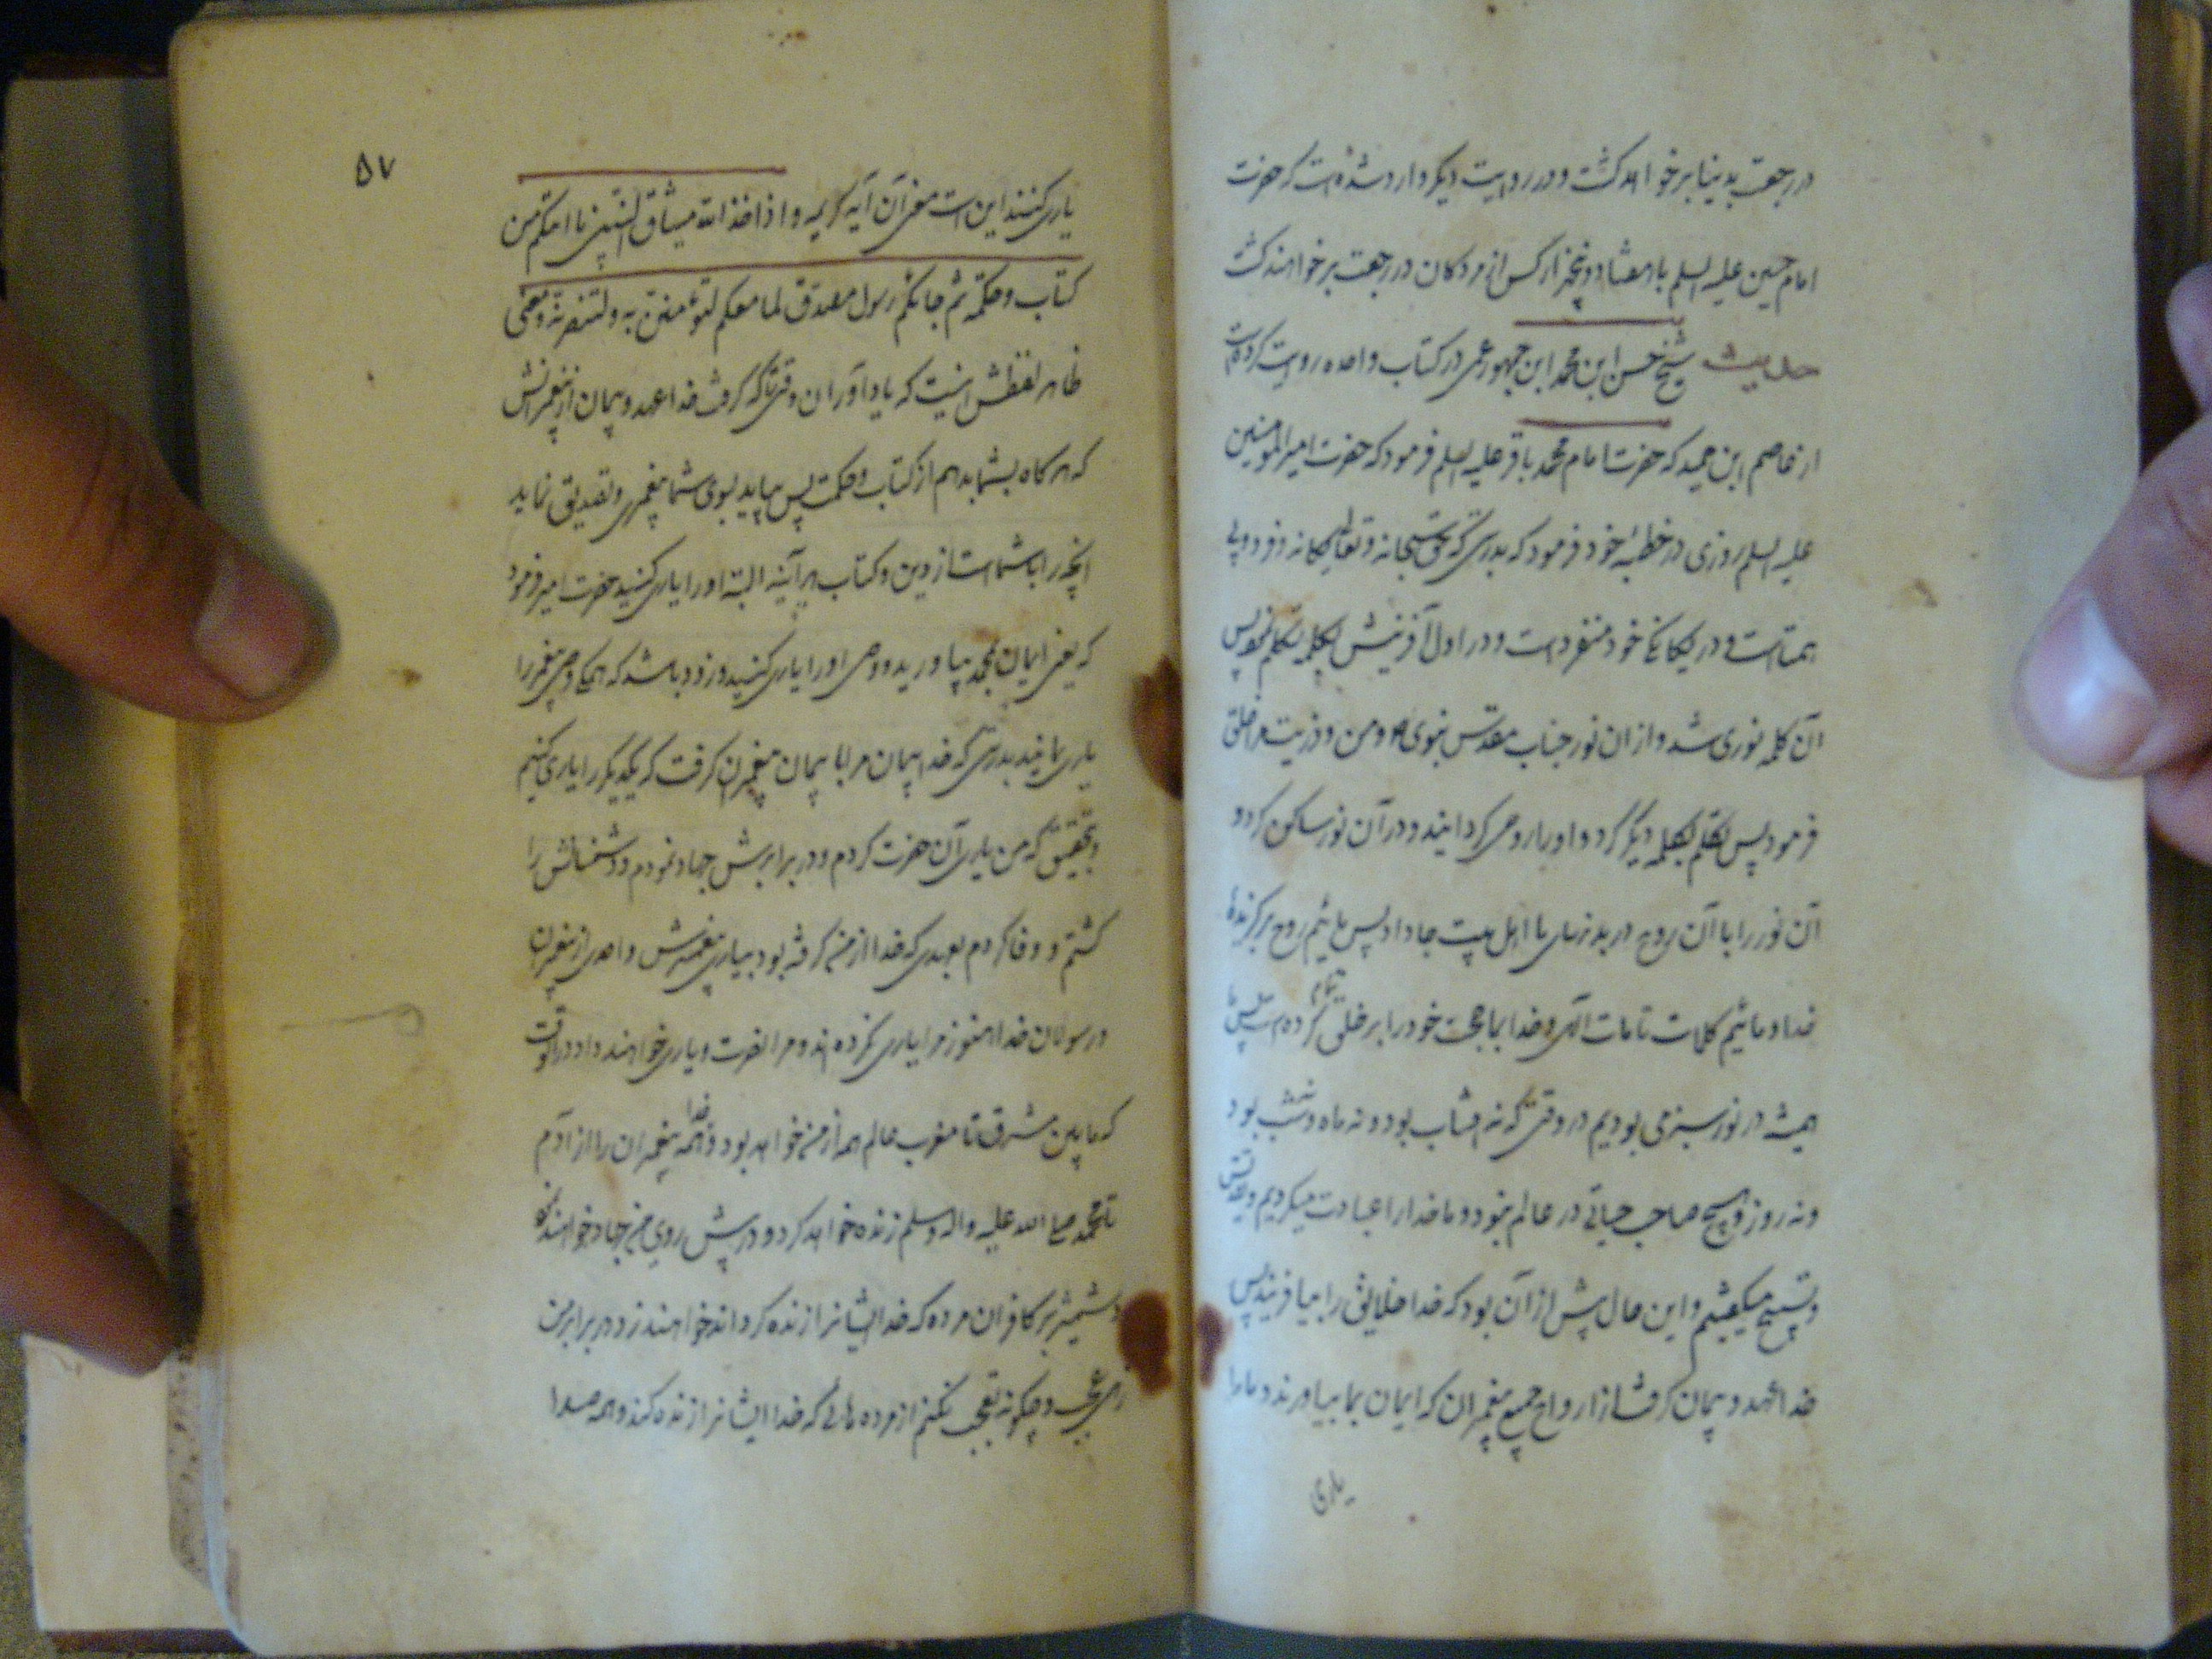 در رجعت بدینا بر خواهد گشت و در روایت دیگر وارد شده است که حضرت
امام حسین علیه السلم با هفتاد و پنجهزار کس از مردکان در رجعت بر خواهند کشت
حدیث شیخ حسن ابن محمد ابن جمهور عمی در کتاب واحده روایت کرده است
از عاصم ابن حمید که حضرت امام محمد باقر علیه السلم فرمود که حضرت امیر المومنین
علیه السلم روزی در خطبهٔ خود فرمود که بدرستی که حق سبحانه و تعالی یکانه و فرد و بی
همتاست و در یکانکی خود منفرد است و در اول آفرینش بکلمه تکلم نمود پس
آن کلمه نوری شد و از ان نور جناب مقدس نبوی و من و ذریت مرا خلق
فرمود پس تکلم بکلمه دیگر کرد و او را روحی کردانیند و در آن نور ساکن کرد و
آن نور را با آن روح در بدنهای ما اهل بیت جا داد پس مائیم روح برکزیدهٔ
خدا و مائیم کلمات تامات الهی و خدا بما حجت خود را بر خلق تمام کرده است پس ما
همیشه در نور سبزی بودیم در وقتی که نه افتاب بود و نه ماه و نه شب بود
و نه روز و هیچ صاحب حیاتی در عالم نبود و ما خدا را عبادت میکردیم و تقدیس
و تسبیح میکفتیم و این حال پیش از آن بود که خدا خلایق را بیافریند پس
خدا عهد و پیمان کرفت از ارواح جمیع پیغمبران که ایمان بما بیاورند و ما را
یاری
۵۷
یاری کنند این است معنی آن آیه کریمه و اذ اخذ الله میثاق النبیین لما اتیتکم من
کتاب و حکمة ثم جائکم رسول مصدق لما معکم لتؤمنن به و لتنصرنه و معنی
ظاهر لفظش اینست که یاد اور ان وقتی را که کرفت خدا عهد و پیمان از پیغمبرانش
که هر کاه بشما بدهم از کتاب و حکمت پس بیاید بسوی شما پیغمبری و تصدیق نماید
انچه را با شماست از دین و کتاب هر آینه البته او را یاری کنید حضرت امیر فرمود
که یعنی ایمان بمحمد بیاورید و وصی او را یاری کنید و زود باشد که همکی وصی پیغمبر را
یاری نمایند بدرستی که خدا پیمان مرا با پیمان پیغمبران کرفت که یکدیکر را یاری کنیم
و بتحقیق که من یاری آن حضرت کردم و در برابرش جهاد نمودم و دشمنانش را
کشتم و وفا کردم بعهدی که خدا از من کرفته بود بیاری پیغمبرش و احدی از پیغمبران
و رسولان خدا هنوز مرا یاری نکرده اند و مرا نصرت و یاری خواهند داد در ان وقت
که مابین مشرق تا مغرب عالم همه از من خواهد بود و خدا همه پیغمبران را از آدم
تا محمد صلی الله علیه واله وسلم زنده خواهد کرد و در پیش روی من جهاد خواهند کرد
و شمشیر بر کافران مرده که خدا ایشانرا زنده کرداند خواهند زد در برابر من
زهی عجب و چکونه تعجب نکنم از مرده هائی که خدا ایشانرا زنده کند و همه صدا